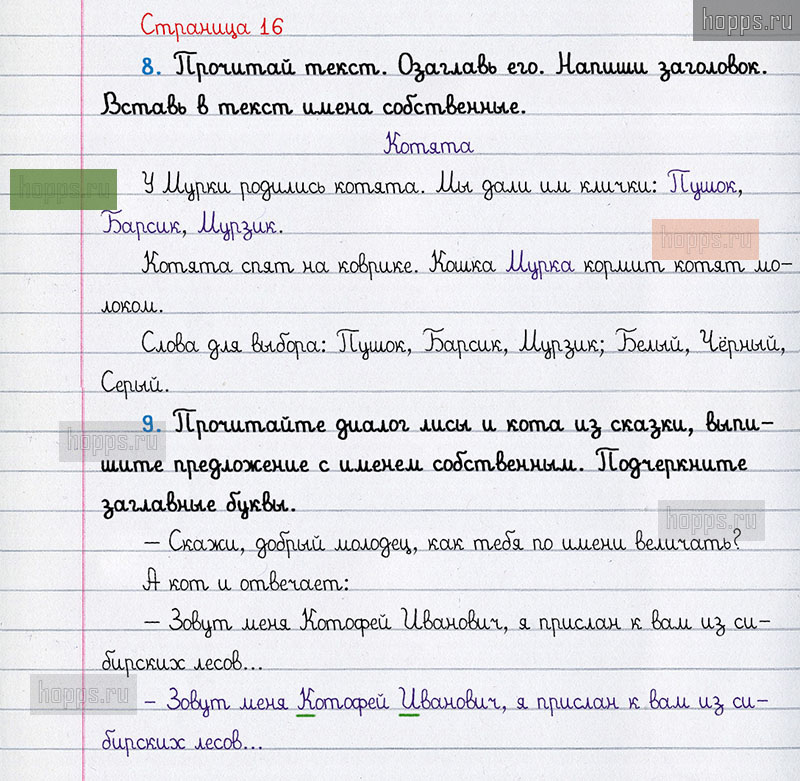 hopps.ru
Страница 16
8. Прочитай текст. Озаглавь его. Напиши заголовок.
Вставь в текст имена собственные.
Котята
hopps.ru
У Мурки родились котята. Мы дали им клички: Пушок,
Барсик, Мурзик.
hopps.ru
Котята спят на коврике. Кошка Мурка кормит котят мо-
локом.
Слова для выбора: Пушок, Барсик, Мурзик; Белый, Чёрный,
Серый.
9. Прочитайте диалог лисы и кота из сказки, выпи-
hopps.ru
шите предложение с именем собственным. Подчеркните
заглавные буквы.
hopps.ru
– Скажи, добрый молодец, как тебя по имени величать?
А кот и отвечает:
– Зовут меня Котофей Иванович, я прислан к вам из си-
бирских лесов...
hopps.ru
– Зовут меня Котофей Иванович, я прислан к вам из си-
бирских лесов...